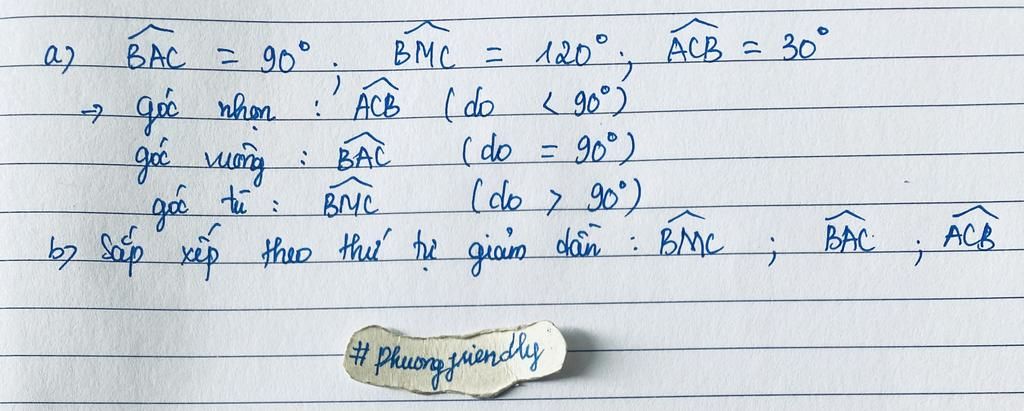 a) $\widehat{BAC}$ = 90° ; $\widehat{BMC}$ = 120° ; $\widehat{ACB}$ = 30°
→ góc nhọn : $\widehat{ACB}$ (do < 90°)
góc vuông : $\widehat{BAC}$ (do = 90°)
góc tù : $\widehat{BMC}$ (do > 90°)
b) Sắp xếp theo thứ tự giảm dần : $\widehat{BMC}$ ; $\widehat{BAC}$ ; $\widehat{ACB}$
#phuongfriendly